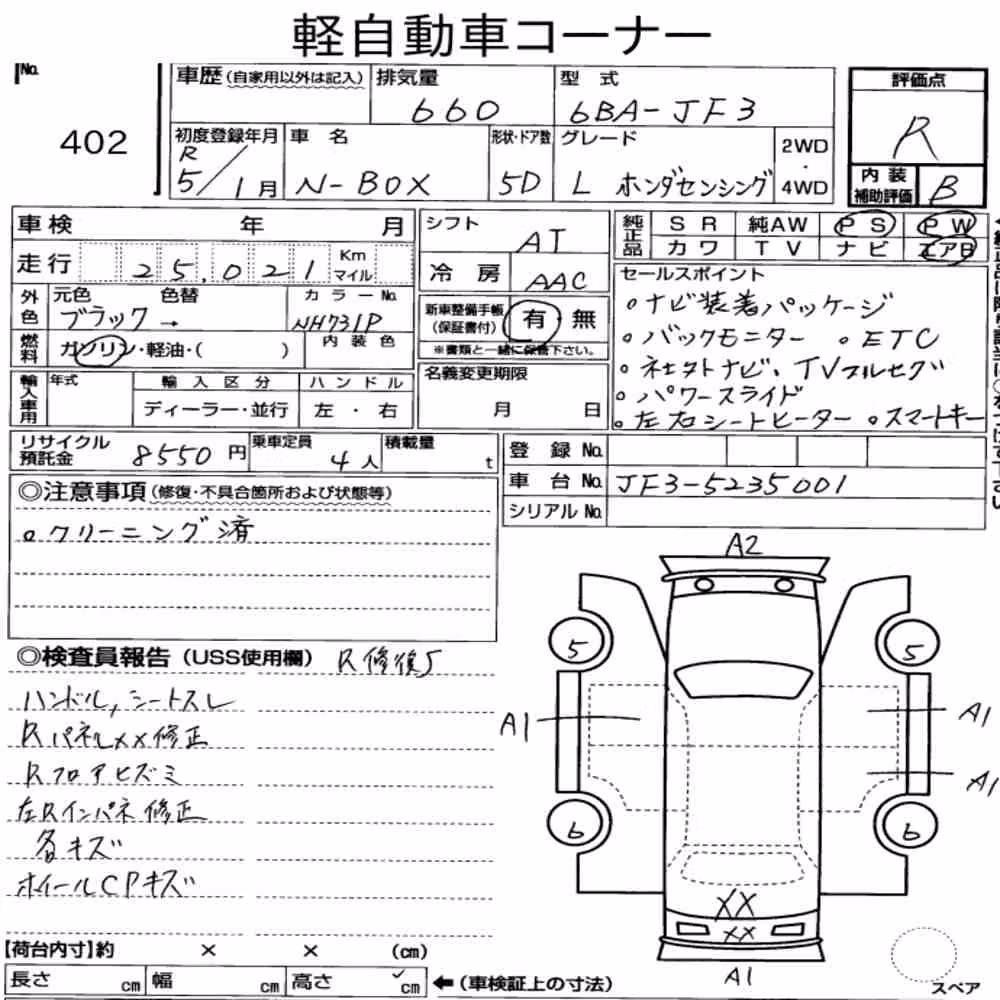 軽自動車コーナー
No. 402
車歴 (自家用以外は記入)
排気量 660
型式 6BA-JF3
評価点 R
初度登録年月 R 5/1月
車名 N-BOX
形状・ドア数 5D
グレード L ホンダセンシング
2WD・4WD
内装補助評価 B
車検 年 月
シフト AT
純正品 SR 純AW PS PW
カワ TV ナビ エアB
走行 25.021 Km マイル
冷房 AAC
セールスポイント
。ナビ装着パッケージ
。バックモニター 。ETC
。社外ナビ、TVフルセグ
。パワースライド
。左右シートヒーター 。スマートキー
外色 元色 ブラック → 色替 カラーNo. NH731P
新車整備手帳(保証書付) 有・無
※書類と一緒に保管下さい。
燃料 ガソリン・軽油・( ) 内装色
名義変更期限 月 日
輸入車用 年式 輸入区分 ハンドル
ディーラー・並行 左・右
リサイクル預託金 8550円
乗車定員 4人
積載量 t
登録No.
車台No. JF3-5235001
シリアルNo.
◎注意事項 (修復・不具合箇所および状態等)
。クリーニング済
◎検査員報告 (USS使用欄) R修復歴
ハンドル,シートスレ
Rパネル××修正
Rフロアヒズミ
左Rインパネ修正
各キズ
ホイールCPキズ
A2
5 5
A1 A1
A1
6 6
XX
XX
A1
スペア
【荷台内寸】約 × × (cm)
長さ cm 幅 cm 高さ cm ←(車検証上の寸法)